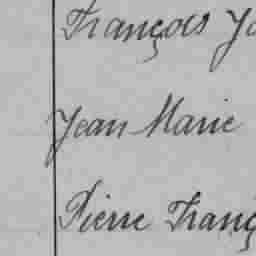 François Jo
Jean Marie
Pierre Franç